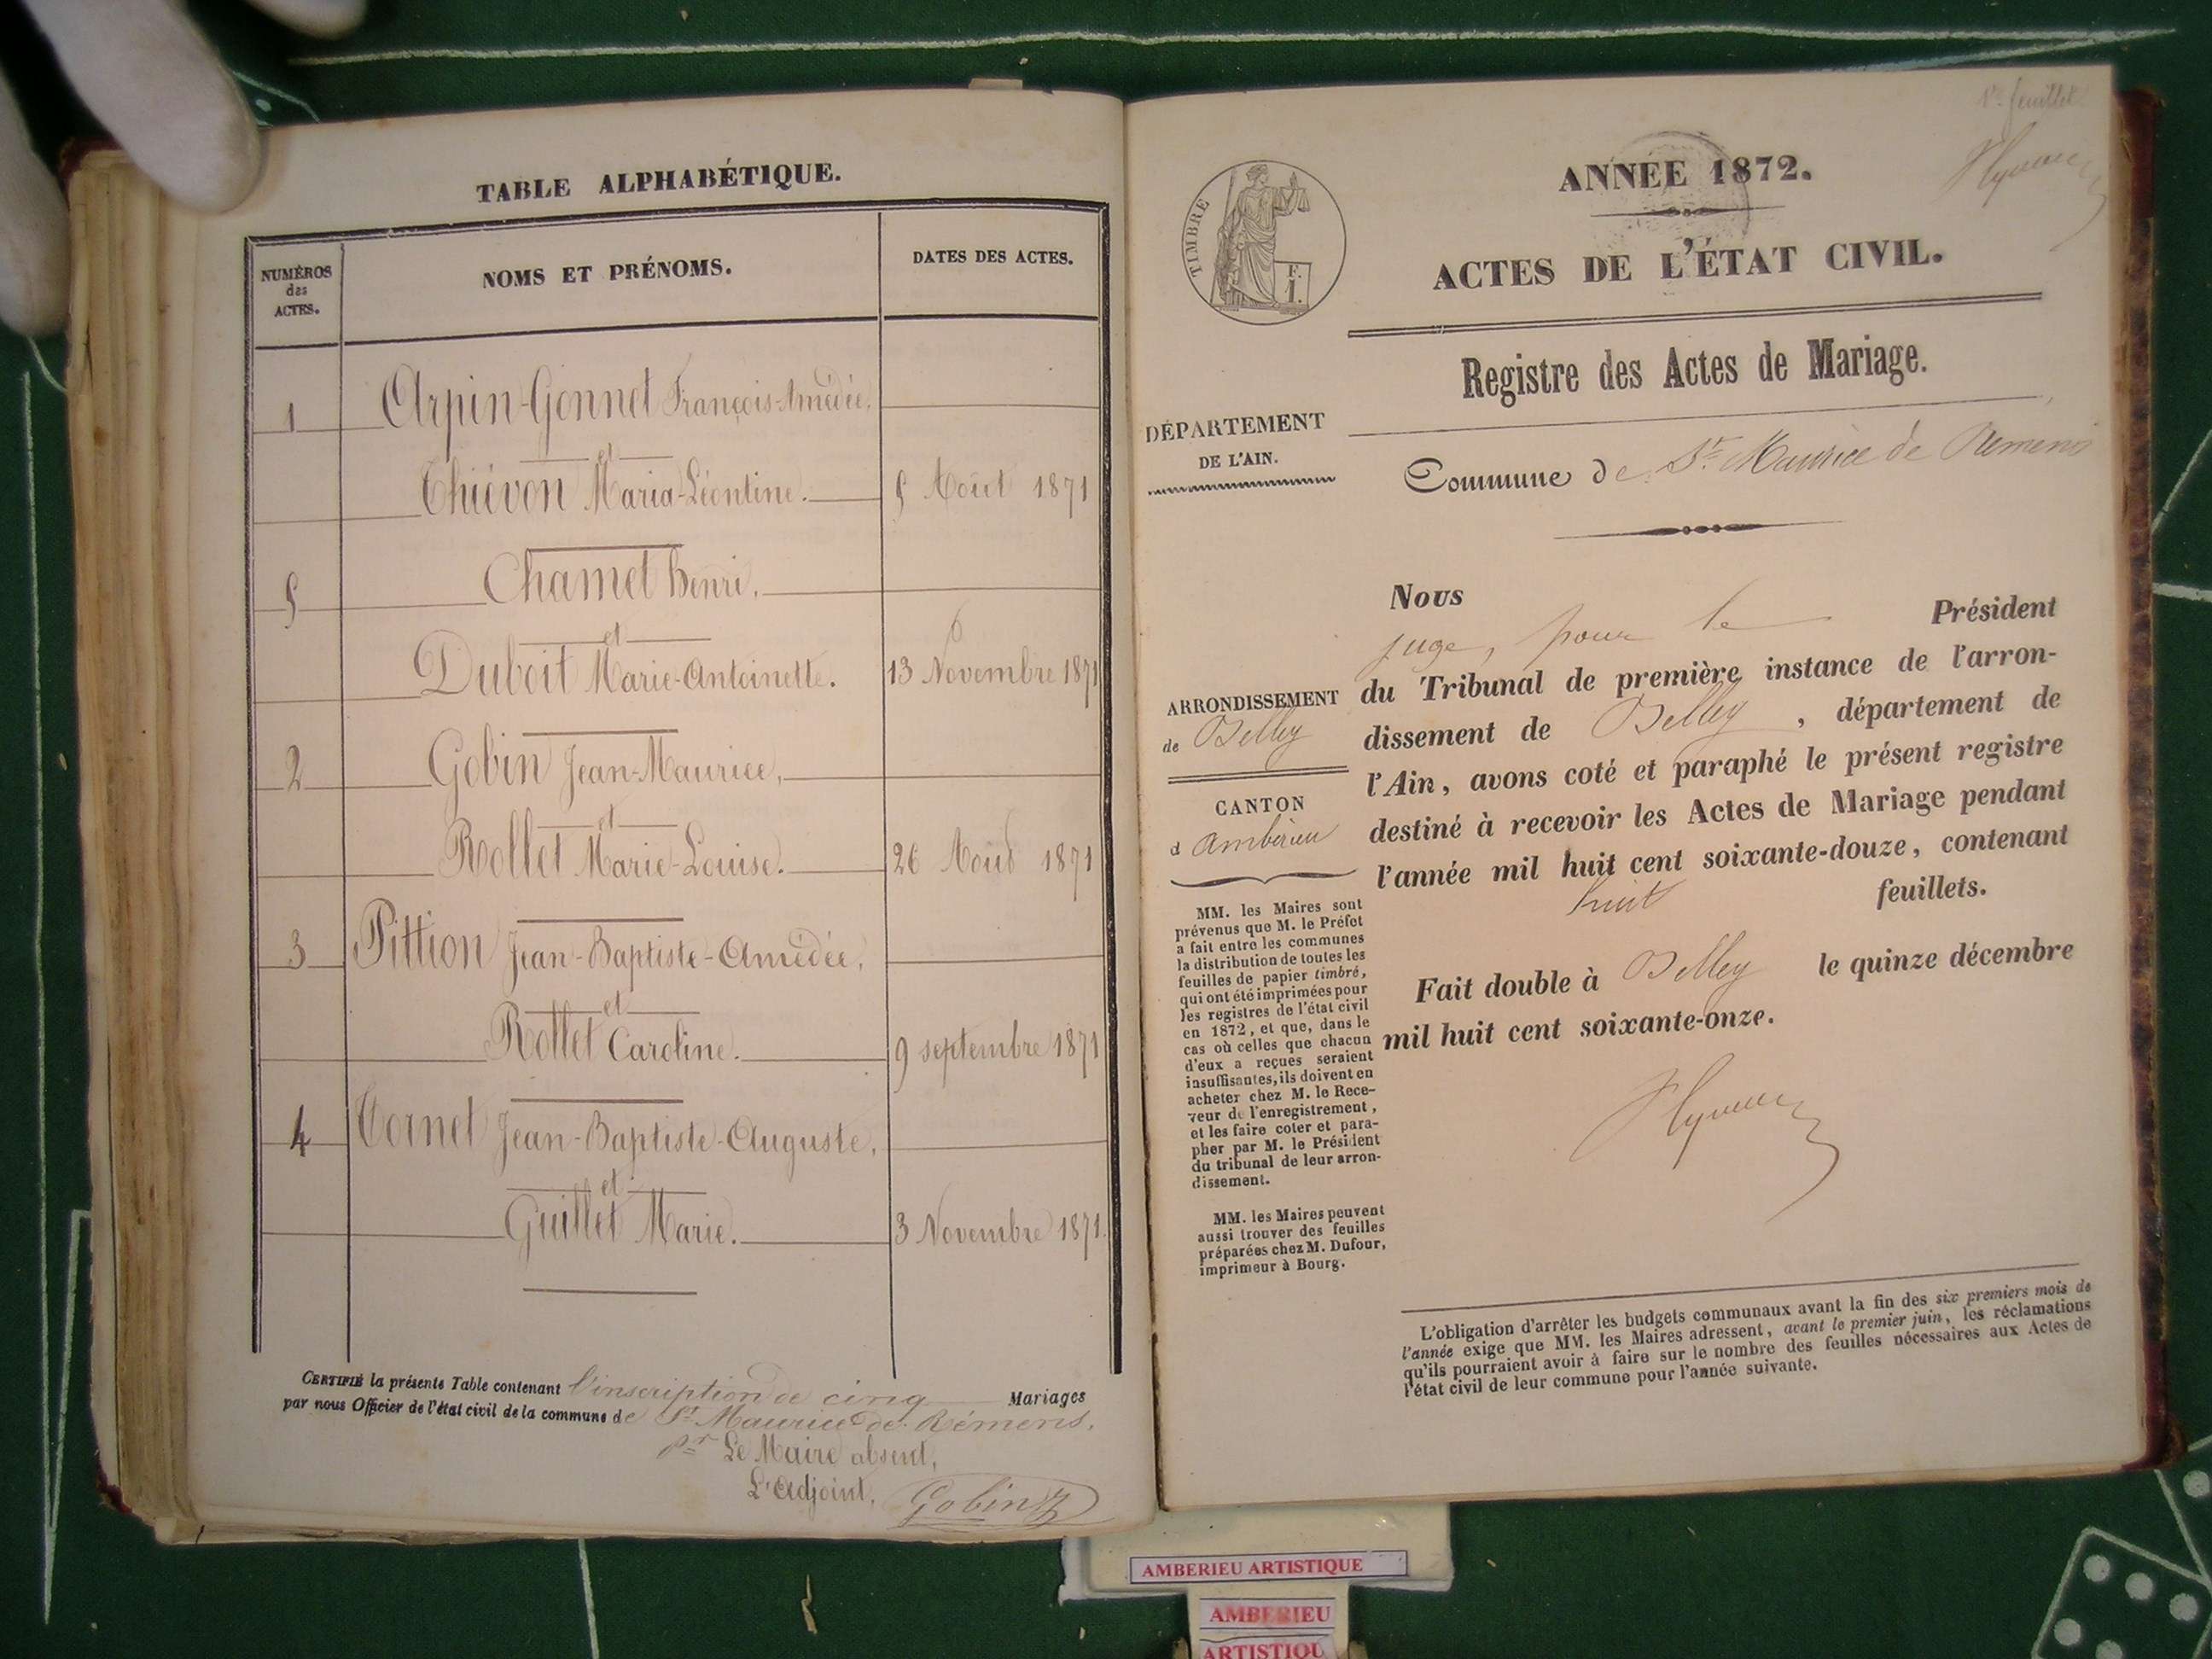 TABLE ALPHABÉTIQUE.
NUMÉROS
des
ACTES.
NOMS ET PRÉNOMS.
DATES DES ACTES.
1 Arpin-Gonnet François-Amédée,
et
Thiévon Maria-Léontine. 5 Août 1871
5 Chamet henri,
et
Duboit Marie-Antoinette. 13 Novembre 1871
2 Gobin Jean-Maurice,
et
Rollet Marie-Louise. 26 Août 1871
3 Pittion Jean-Baptiste-Amédée,
et
Rollet Caroline. 9 septembre 1871
4 Cornet Jean-Baptiste-Auguste,
et
Guillet Marie. 3 Novembre 1871.
CERTIFIÉ la présente Table contenant l'inscription de cinq Mariages
par nous Officier de l'état civil de la commune de St Maurice de Rémens.
pr Le Maire absent,
L'adjoint,
Gobin
1er feuillet
TIMBRE
F.
I.
ANNÉE 1872.
ACTES DE L'ÉTAT CIVIL.
Registre des Actes de Mariage.
DÉPARTEMENT
DE L'AIN.
Commune de St Maurice de Remens
ARRONDISSEMENT
de Belley
CANTON
d'ambérieu
MM. les Maires sont
prévenus que M. le Préfet
a fait entre les communes
la distribution de toutes les
feuilles de papier timbré,
qui ont été imprimées pour
les registres de l'état civil
en 1872, et que, dans le
cas où celles que chacun
d'eux a reçues seraient
insuffisantes, ils doivent en
acheter chez M. le Rece-
veur de l'enregistrement,
et les faire coter et para-
pher par M. le Président
du tribunal de leur arron-
dissement.
MM. les Maires peuvent
aussi trouver des feuilles
préparées chez M. Dufour,
imprimeur à Bourg.
Nous
juge, pour le Président
du Tribunal de première instance de l'arron-
dissement de Belley, département de
l'Ain, avons coté et paraphé le présent registre
destiné à recevoir les Actes de Mariage pendant
l'année mil huit cent soixante-douze, contenant
huit feuillets.
Fait double à Belley le quinze décembre
mil huit cent soixante-onze.
L'obligation d'arrêter les budgets communaux avant la fin des six premiers mois de
l'année exige que MM. les Maires adressent, avant le premier juin, les réclamations
qu'ils pourraient avoir à faire sur le nombre des feuilles nécessaires aux Actes de
l'état civil de leur commune pour l'année suivante.
AMBERIEU ARTISTIQUE
AMBERIEU
ARTISTIQU